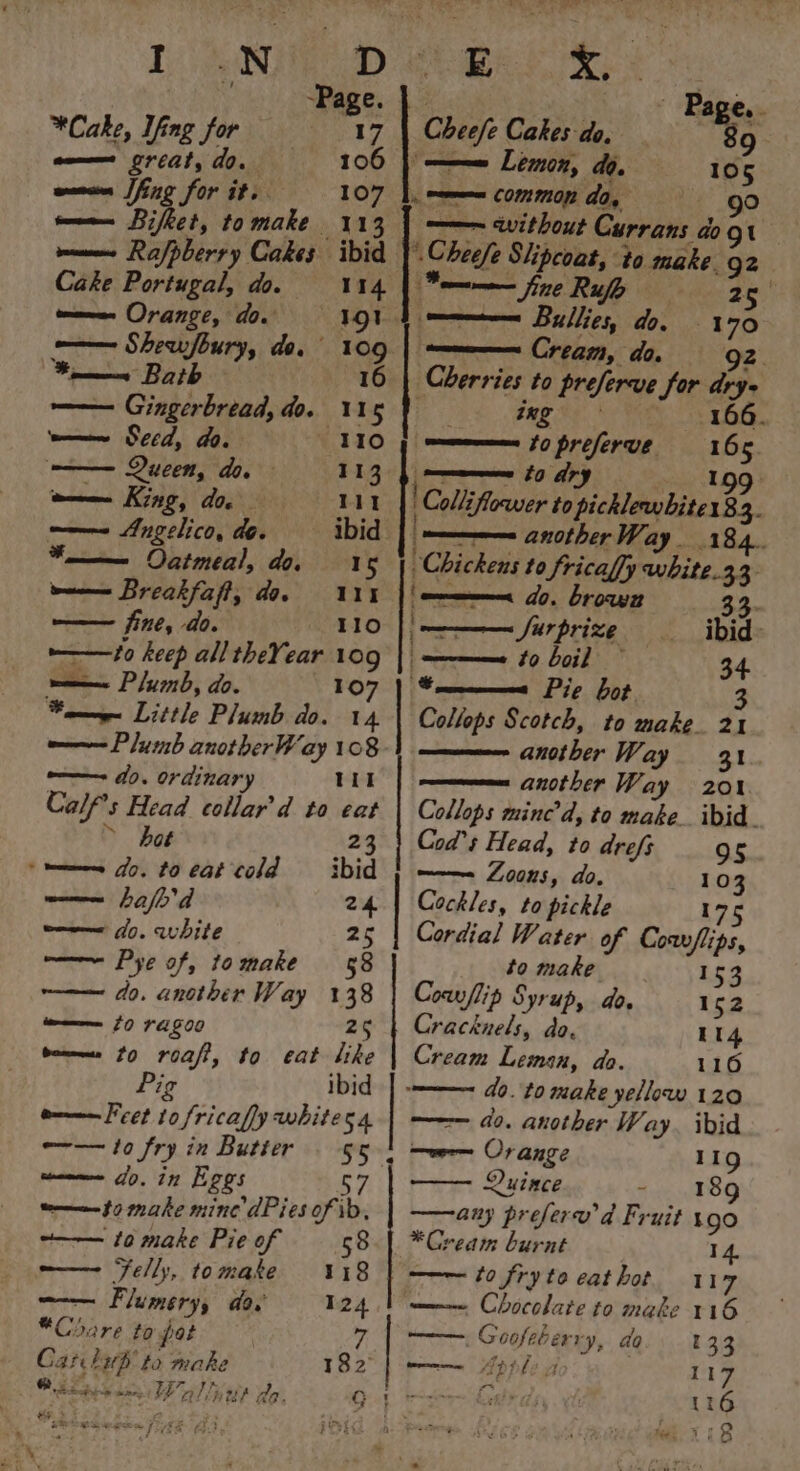 I N D E X.
Page.
*Cake, Iſing for 17
—— great, do. 106
—— Iſing for it. 107
—— Biſket, to make 113
—— Raſpberry Cakes ibid
Cake Portugal, do. 114
—— Orange, do. 191
—— Shewſbury, do. 109
*—— Bath 16
—— Gingerbread, do. 115
—— Seed, do. 110
—— Queen, do. 113
—— King, do. 111
—— Angelico, do. ibid
*—— Oatmeal, do. 15
—— Breakfaſt, do. 111
—— fine, do. 110
—— to keep all theYear 109
—— Plumb, do. 107
*—— Little Plumb do. 14
—— Plumb anotherWay 108
—— do. ordinary 111
Calf's Head collar'd to eat
hot 23
—— do. to eat cold ibid
—— haſh'd 24
—— do. white 25
—— Pye of, to make 58
—— do. another Way 138
—— to ragoo 25
—— to roaſt, to eat like
Pig ibid
—— Feet to fricaſſy white 54
—— to fry in Butter 55
—— do. in Eggs 57
—— to make minc'd Pies of ib.
—— to make Pie of 58
—— Jelly, to make 118
—— Flumery, do. 124
*Chare to pot 7
Catchup to make 182
Wallnut do. 9
Page.
Cheeſe Cakes do. 89
—— Lemon, do. 105
—— common do, 90
—— without Currans do 91
Cheeſe Slipcoat, to make. 92
*—— fine Ruſh 25
—— Bullies, do. 170
—— Cream, do. 92
Cherries to preſerve for dry-
ing 166.
—— to preſerve 165
—— to dry 199
Colliflower to pickle white 183.
—— another Way 184.
Chickens to fricaſſy white. 33
—— do. brown 33.
—— ſurprize ibid
—— to boil 34
*—— Pie hot 3
Collops Scotch, to make. 21
—— another Way 31
—— another Way 201
Collops minc'd, to make ibid
Cod's Head, to dreſs 95
—— Zoons, do. 103
Cockles, to pickle 175
Cordial Water of Cowſlips,
to make 153
Cowſlip Syrup, do. 152
Cracknels, do. 114
Cream Lemon, do. 116
—— do. to make yellow 120
—— do. another Way. ibid
—— Orange 119
—— Quince - 189
—— any preſerv'd Fruit 190
*Cream burnt 14
—— to fry to eat hot 117
—— Chocolate to make 116
—— Gooſeberry, do 133
—— Apple do 117
116
118